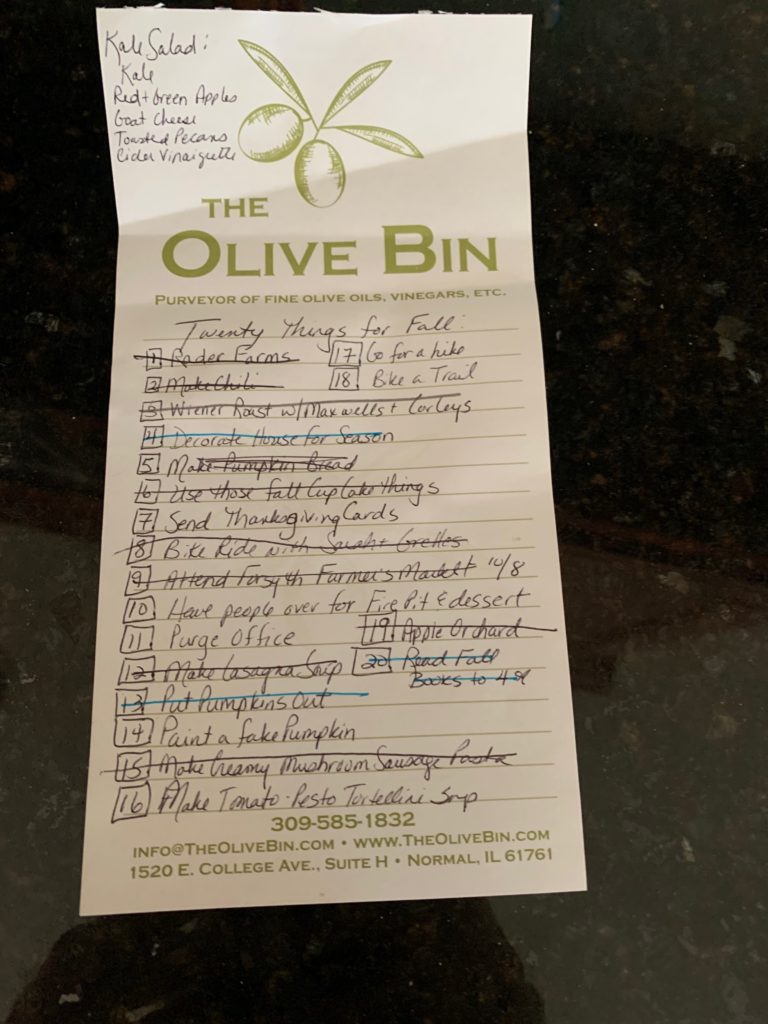 Kale Salad:
Kale
Red + Green Apples
Goat Cheese
Toasted Pecans
Cider Vinaigrette
THE
OLIVE BIN
PURVEYOR OF FINE OLIVE OILS, VINEGARS, ETC.
Twenty Things for Fall:
1 Rader Farms
17 Go for a hike
2 Make Chili
18 Bike a Trail
3 Wiener Roast w/ Maxwells + Corleys
4 Decorate House for Season
5. Make Pumpkin Bread
6 Use those fall Cupcake Things
7 Send Thanksgiving Cards
8 Bike Ride with Sarah +
9 Attend Forsyth Farmer's Market 10/8
10 Have people over for Fire Pit & dessert
11 Purge Office
19 Apple Orchard
12 Make Lasagna Soup
20 Read Fall
Books to
13 Put Pumpkins Out
14 Paint a fake Pumpkin
15 Make Creamy Mushroom Sausage Pasta
16 Make Tomato-Pesto Tortellini Soup
309-585-1832
INFO@THEOLIVEBIN.COM • WWW.THEOLIVEBIN.COM
1520 E. COLLEGE AVE., SUITE H • NORMAL, IL 61761